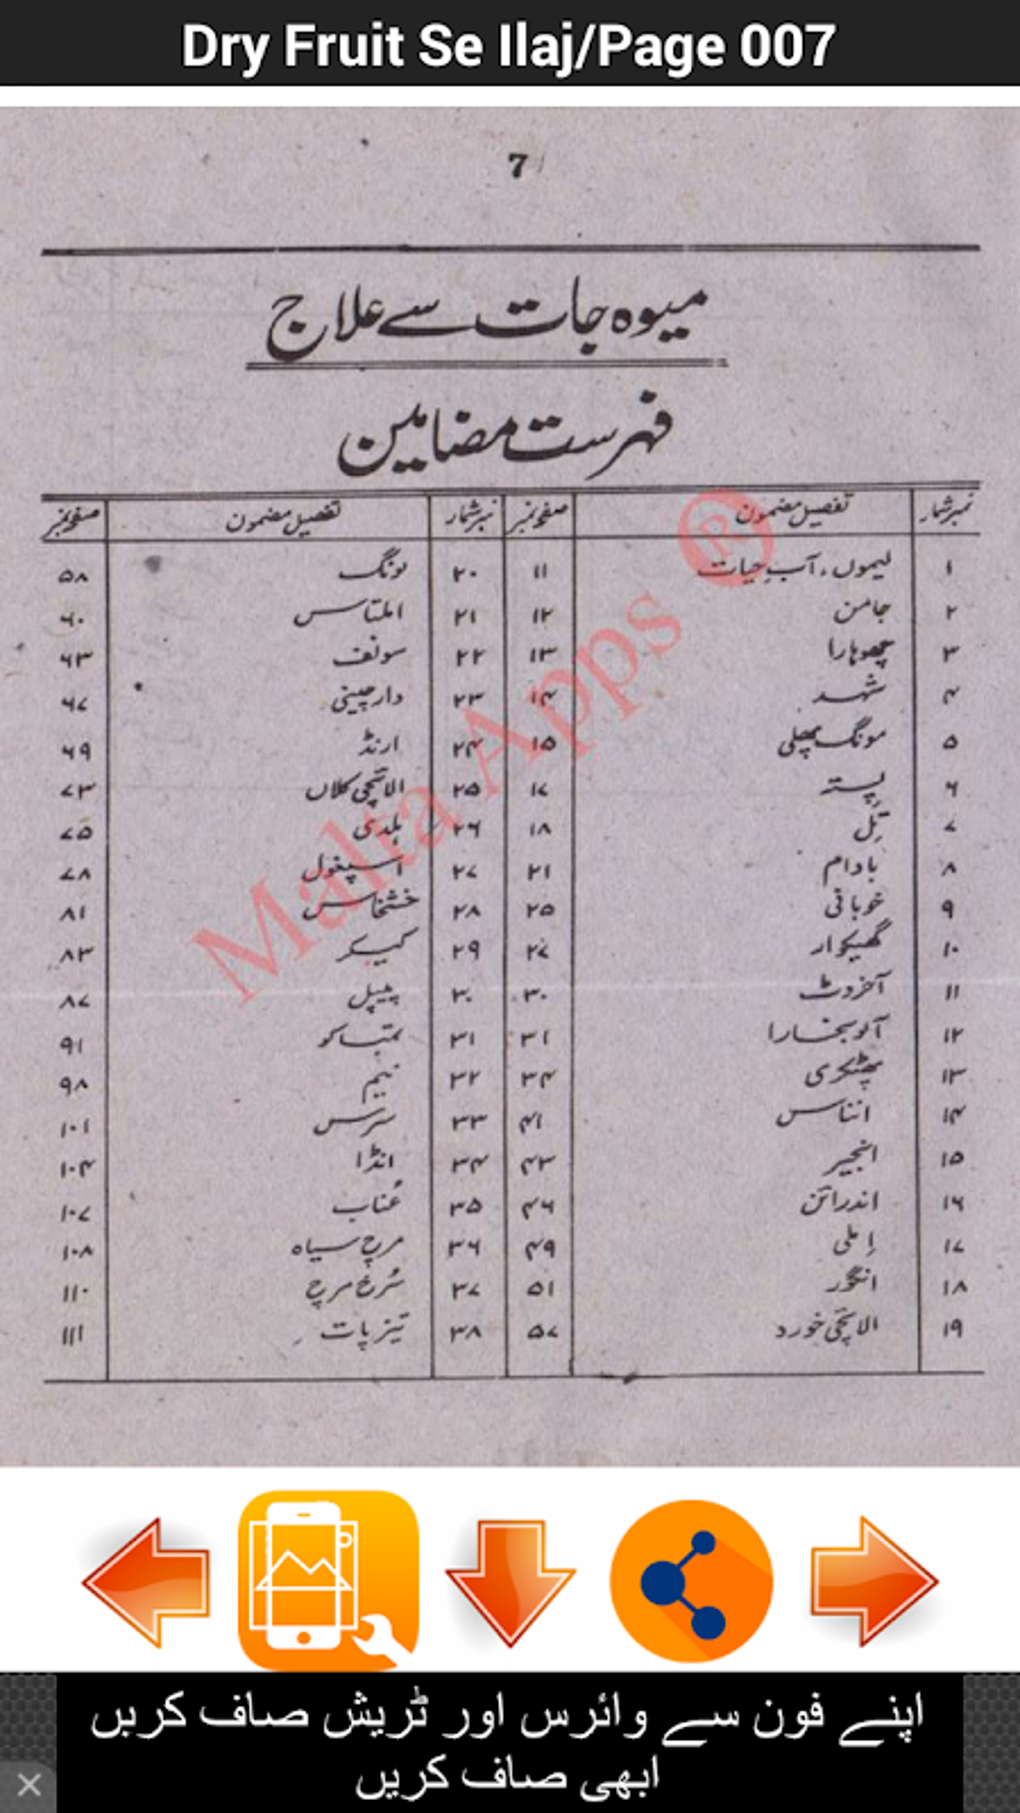 Dry Fruit Se Ilaj/Page 007
7
میوہ جات سے علاج
فہرست مضامین
نمبر شمار تفصیل مضمون صفحہ نمبر نمبر شمار تفصیل مضمون صفحہ نمبر
۱ لیموں، آب حیات ۱۱ ۲۰ لونگ ۵۸
۲ جامن ۱۲ ۲۱ املتاس ۶۰
۳ چھوہارا ۱۳ ۲۲ سونف ۶۳
۴ شہد ۱۴ ۲۳ دارچینی ۶۷
۵ مونگ پھلی ۱۵ ۲۴ ارنڈ ۶۹
۶ پستہ ۱۷ ۲۵ الائچی کلاں ۷۳
۷ تِل ۱۸ ۲۶ ہلدی ۷۵
۸ بادام ۲۱ ۲۷ اسپغول ۷۸
۹ خوبانی ۲۵ ۲۸ خشخاس ۸۱
۱۰ گھیکوار ۲۷ ۲۹ کیکر ۸۳
۱۱ آخروٹ ۳۰ ۳۰ پیپل ۸۷
۱۲ آلوبخارا ۳۱ ۳۱ تمباکو ۹۱
۱۳ پھٹکری ۳۴ ۳۲ نیم ۹۸
۱۴ انناس ۴۱ ۳۳ سرس ۱۰۱
۱۵ انجیر ۴۳ ۳۴ انڈا ۱۰۴
۱۶ اندرائن ۴۶ ۳۵ عُناب ۱۰۷
۱۷ اِملی ۴۹ ۳۶ مرچ سیاہ ۱۰۸
۱۸ انگور ۵۱ ۳۷ سُرخ مرچ ۱۱۰
۱۹ الائچی خورد ۵۷ ۳۸ تیزپات ۱۱۱
Malta Apps ®
اپنے فون سے وائرس اور ٹریش صاف کریں
ابھی صاف کریں